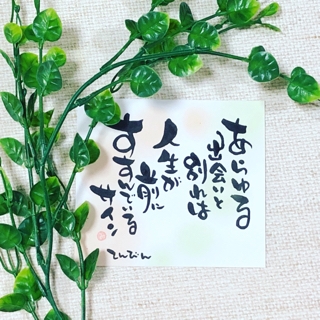 あらゆる
出会いと
別れは
人生が
前に
すすんでいる
サイン
てんびん